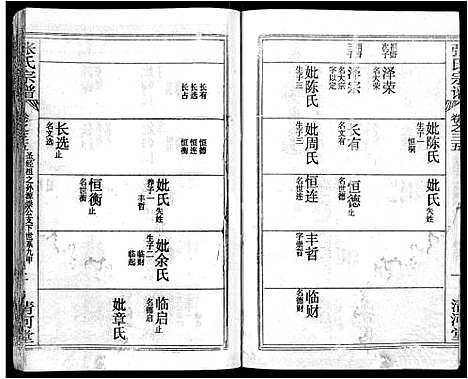 张氏宗谱
卷之三五
清河堂
泽荣
名大荣
妣陈氏
生子一
恒稿
泽宗
名大宗
字以定
妣陈氏
生子三
长有
长选
长占
长有
名文有
妣周氏
生子二
恒德
恒连
恒德止
名世德
妣氏失姓
恒连
名世连
丰哲
字崇有
临财
名德财
长选止
名文选
恒衡止
名世衡
妣氏失姓
养子一
丰哲
妣余氏
生子二
临财
临起
临启止
名德启
妣章氏
张氏宗谱
卷之三五
清河堂